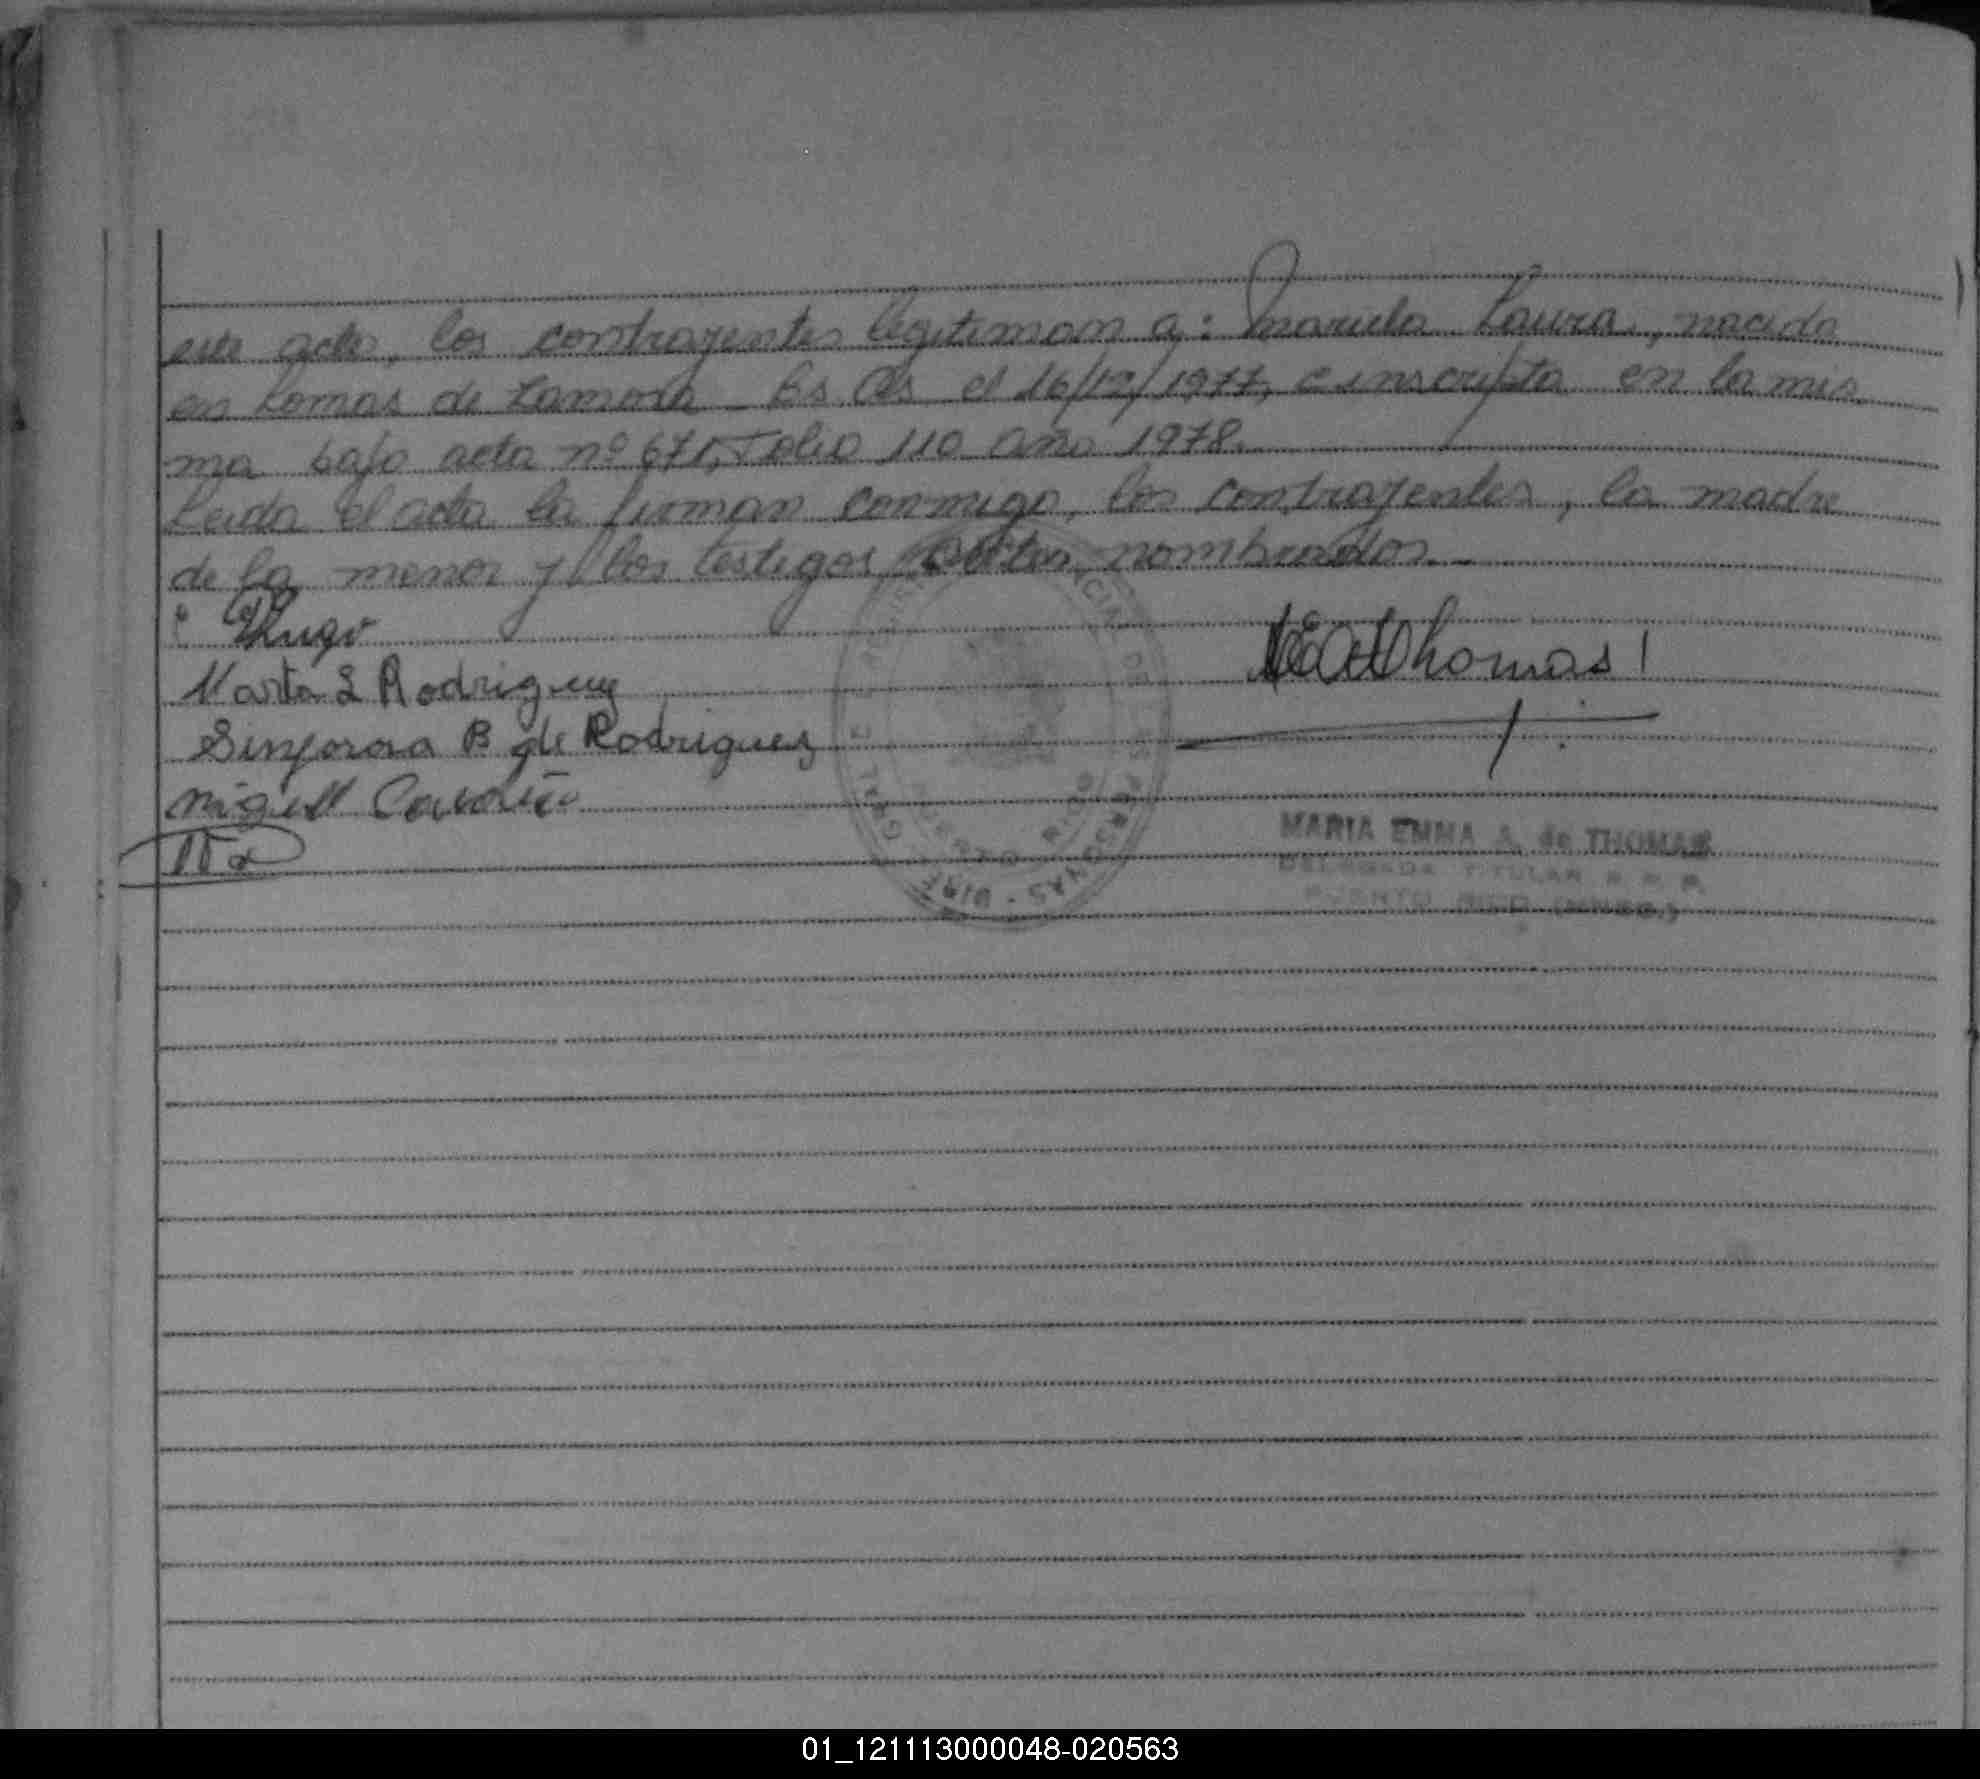 este acto, los contrayentes legitiman a: Mariela Laura, nacida
en Lomas de Zamora Bs As el 16/12/1977, e inscripta en la mis
ma bajo acta nº 671, Folio 110 año 1978.
Leida el acta la firman conmigo, los contrayentes, la madre
de la menor y los testigos antes nombrados.-
Hugo
Marta L Rodriguez
Sinforosa B de Rodriguez
Miguel
MEA Thomas
MARIA EMMA A. de THOMAS
DELEGADA TITULAR R. P.
PUERTO RICO (MNES.)
PROVINCIAL DE LAS PERSONAS - DIRE
PUERTO RICO
01_121113000048-020563